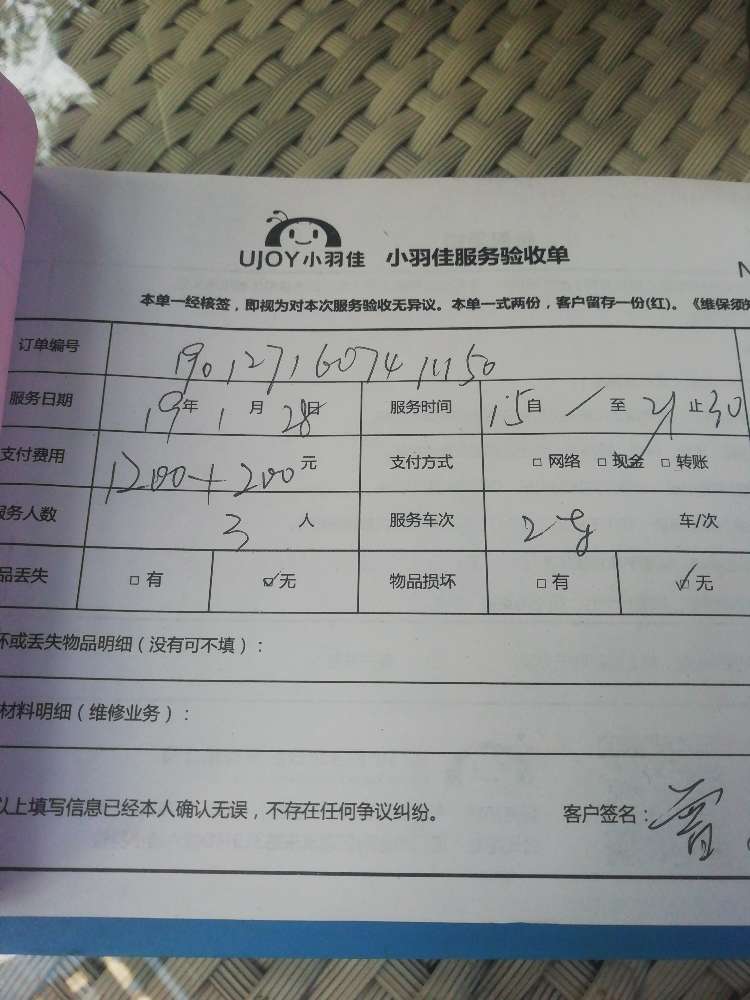 UJOY小羽佳 小羽佳服务验收单
本单一经核签，即视为对本次服务验收无异议。本单一式两份，客户留存一份(红)。《维保须知
订单编号 190127160741150
服务日期 19年 1月 28日 服务时间 15自 / 至 21止30
支付费用 1200+200元 支付方式 □ 网络 □ 现金 □ 转账
服务人数 3人 服务车次 2 车/次
品丢失 □ 有 ☑ 无 物品损坏 □ 有 ☑ 无
坏或丢失物品明细（没有可不填）：
材料明细（维修业务）：
以上填写信息已经本人确认无误，不存在任何争议纠纷。 客户签名：